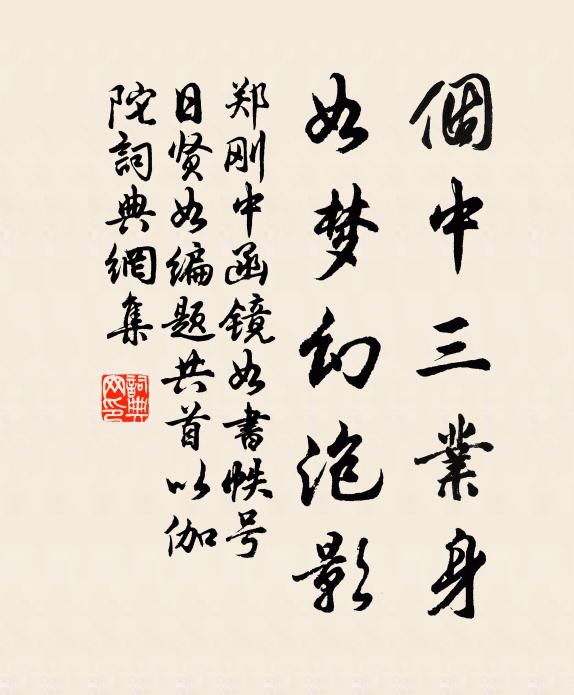 個中三業身
如梦幻泡影
郑刚中函镜如書帙号
日贤如编题共首以伽
陀詞典網集
詞典
网印